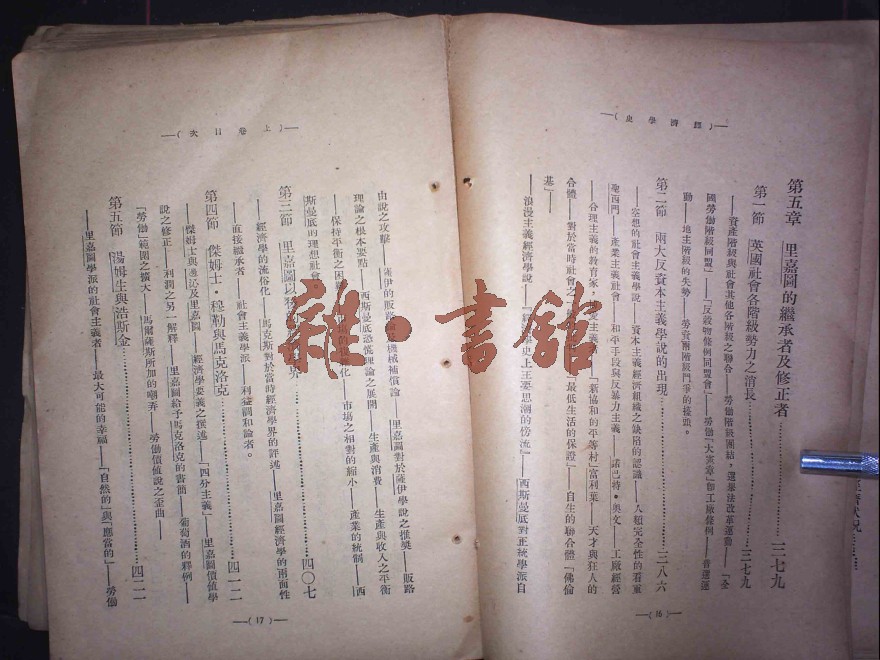 —(經濟學史)—
第五章 里嘉圖的繼承者及修正者…………三七九
第一節 英國社會各階級勢力之消長…………三七九
——資產階級與社會其他各階級之聯合——勞働階級團結，選舉法改革運動——「全
國勞働階級同盟」——「反穀物條例同盟會」——勞働「大憲章」和工廠條例——普選運
動——地主階級的失勢——勞資兩階級鬥爭的接頭。
第二節 兩大反資本主義學說的出現…………三八六
——空想的社會主義學說——資本主義經濟組織之缺陷的認識——人類完全性的看重
——產業主義社會——和平手段與反暴力主義——諾巴特·奧文——工廠經營
——合理主義的教育家「新協和的平等村」富利葉——天才與狂人的
合體——對於當時社會之最低生活的保證」——自生的聯合體「佛倫
基」——
——浪漫主義經濟學說——「經濟學史上主要思潮的傍流」——西斯曼底對正統學派自
—(16)—
—(上卷目次)—
由說之攻擊——薩伊的販路機械補償論——里嘉圖對於薩伊學說之推獎——販路
理論之根本要點——西斯曼底恐慌理論之展開——生產與消費——生產與收入之平衡
——保持平衡之困化——市場之相對的縮小——產業的統制——西
斯曼底的理想社會。
第三節 里嘉圖以界…………四〇七
——經濟學的流俗化——馬克斯對於當時經濟學界的評述——里嘉圖經濟學的兩面性
——直接繼承者——社會主義學派——利益調和論者。
第四節 傑姆士·穆勒與馬克洛克…………四一二
——傑姆士與邊沁及里嘉圖——「經濟學要義之撰述」——「四分主義」——里嘉圖價值學
說之修正——利潤之另一解釋——里嘉圖給予馬克洛克的書簡——葡萄酒的釋例——
「勞働」範圍之擴大——馬爾薩斯所加的嘲弄——勞働價值說之歪曲——
第五節 湯姆生與浩斯金…………四二二
——里嘉圖學派的社會主義者——最大可能的幸福——「自然的」與「應當的」——勞働
—(17)—
雜·書館